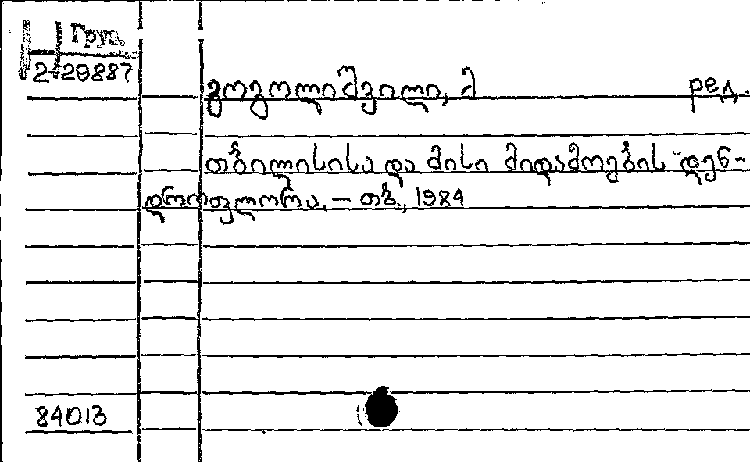 Груз.
2-29887
გოგოლიშვილი, მ ред.
თბილისისა და მისი მიდამოების დენ-
დროფლორა. — თბ., 1984
84013